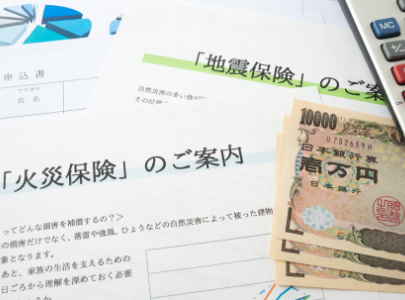 申込書
フリガナ
氏 名
「地震保険」のご案
自然災害の多い
その位
「火災保険」のご案内
ってどんな損害を補償するの？＞
の損害だけでなく、落雷や強風、ひょうなどの自然災害によって被った建物
象となります。
あと、家族の生活を支えるための
日ごろから理解を深めておく必要
か。
10000
U752659H
日本銀行券
壱万円
日本銀行
MC